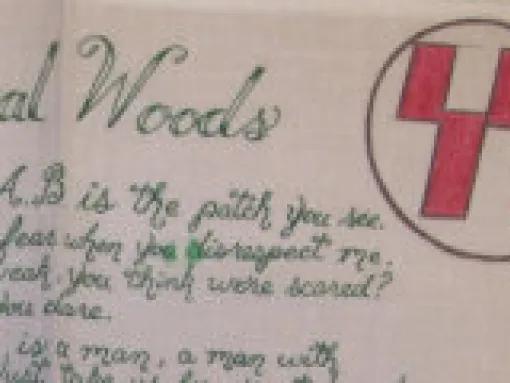 al Woods
A.B is the patch you see.
fear when you disrespect me.
yeah, you think were scared?
you dare.
is a man, a man with